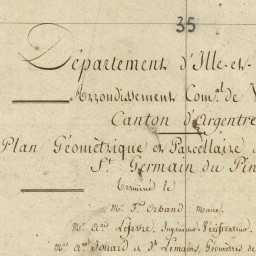 35
Département d'Ille-et-
Arrondissement Com.al de V
Canton d'Argentré
Plan Géométrique et Parcellaire
St. Germain du Pin
Terminé le
Mr. Maire.
Mr. Lefevre, Ingénieur Vérificateur.
Mr. & St. Géomètres de